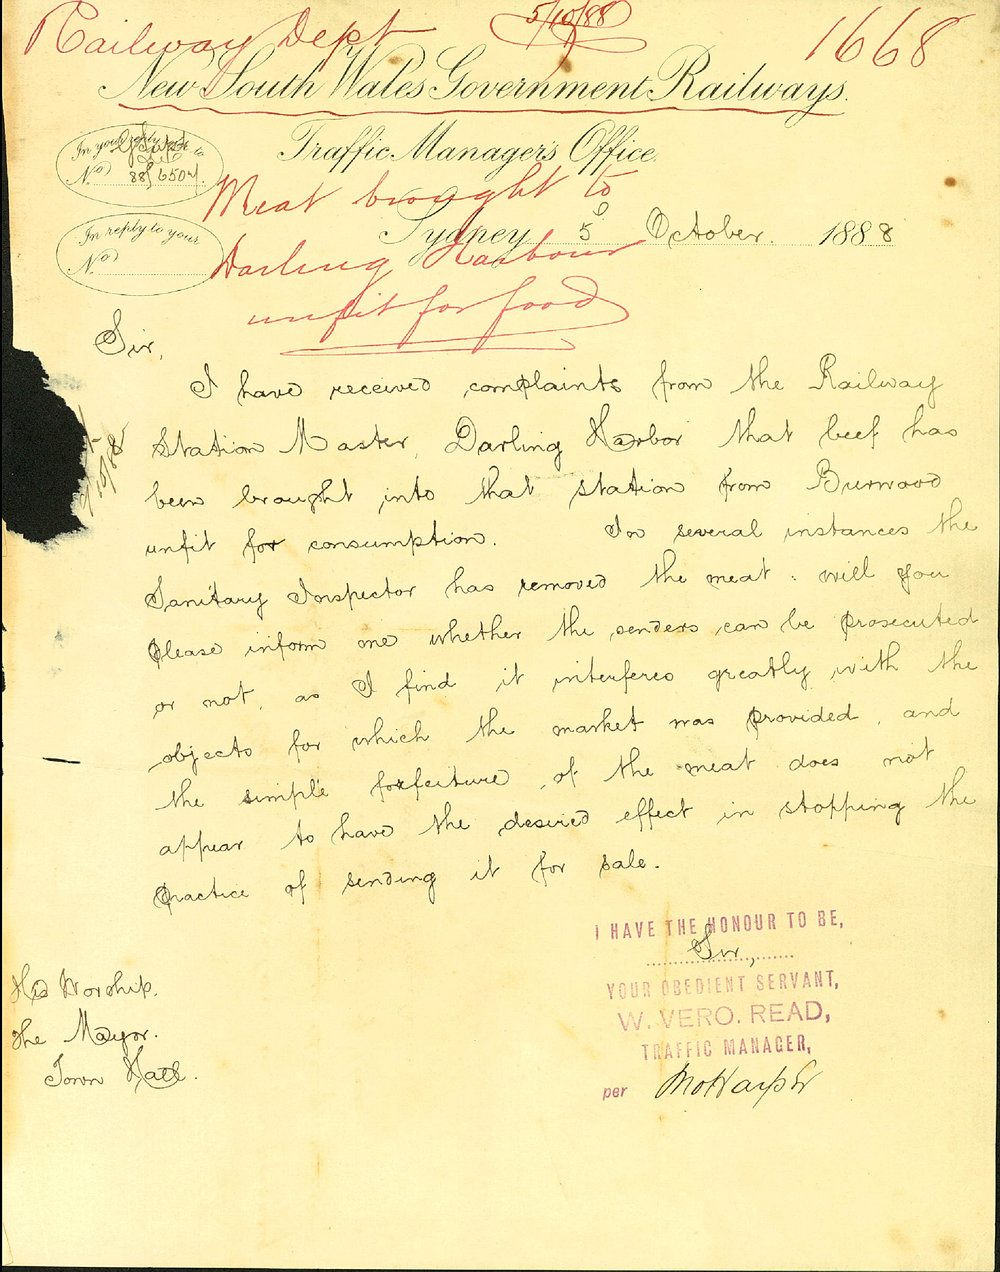 Railway Dept 5/10/88 1668
New South Wales Government Railways.
In your reply to
No 88/6504
Traffic Manager's Office.
Meat brought to
Sydney 5 October. 1888
In reply to your
No
Darling Harbour
unfit for food
Sir,
I have received complaints from the Railway
Station Master, Darling Harbor that beef has
been brought into that station from Burwood
unfit for consumption. In several instances the
Sanitary Inspector has removed the meat: will you
please inform me whether the senders can be prosecuted
or not, as I find it interferes greatly with the
objects for which the market was provided, and
the simple forfeiture of the meat does not
appear to have the desired effect in stopping the
practice of sending it for sale.
I HAVE THE HONOUR TO BE,
Sir,
YOUR OBEDIENT SERVANT,
W. VERO. READ,
TRAFFIC MANAGER,
per
His Worship.
The Mayor.
Town Hall.